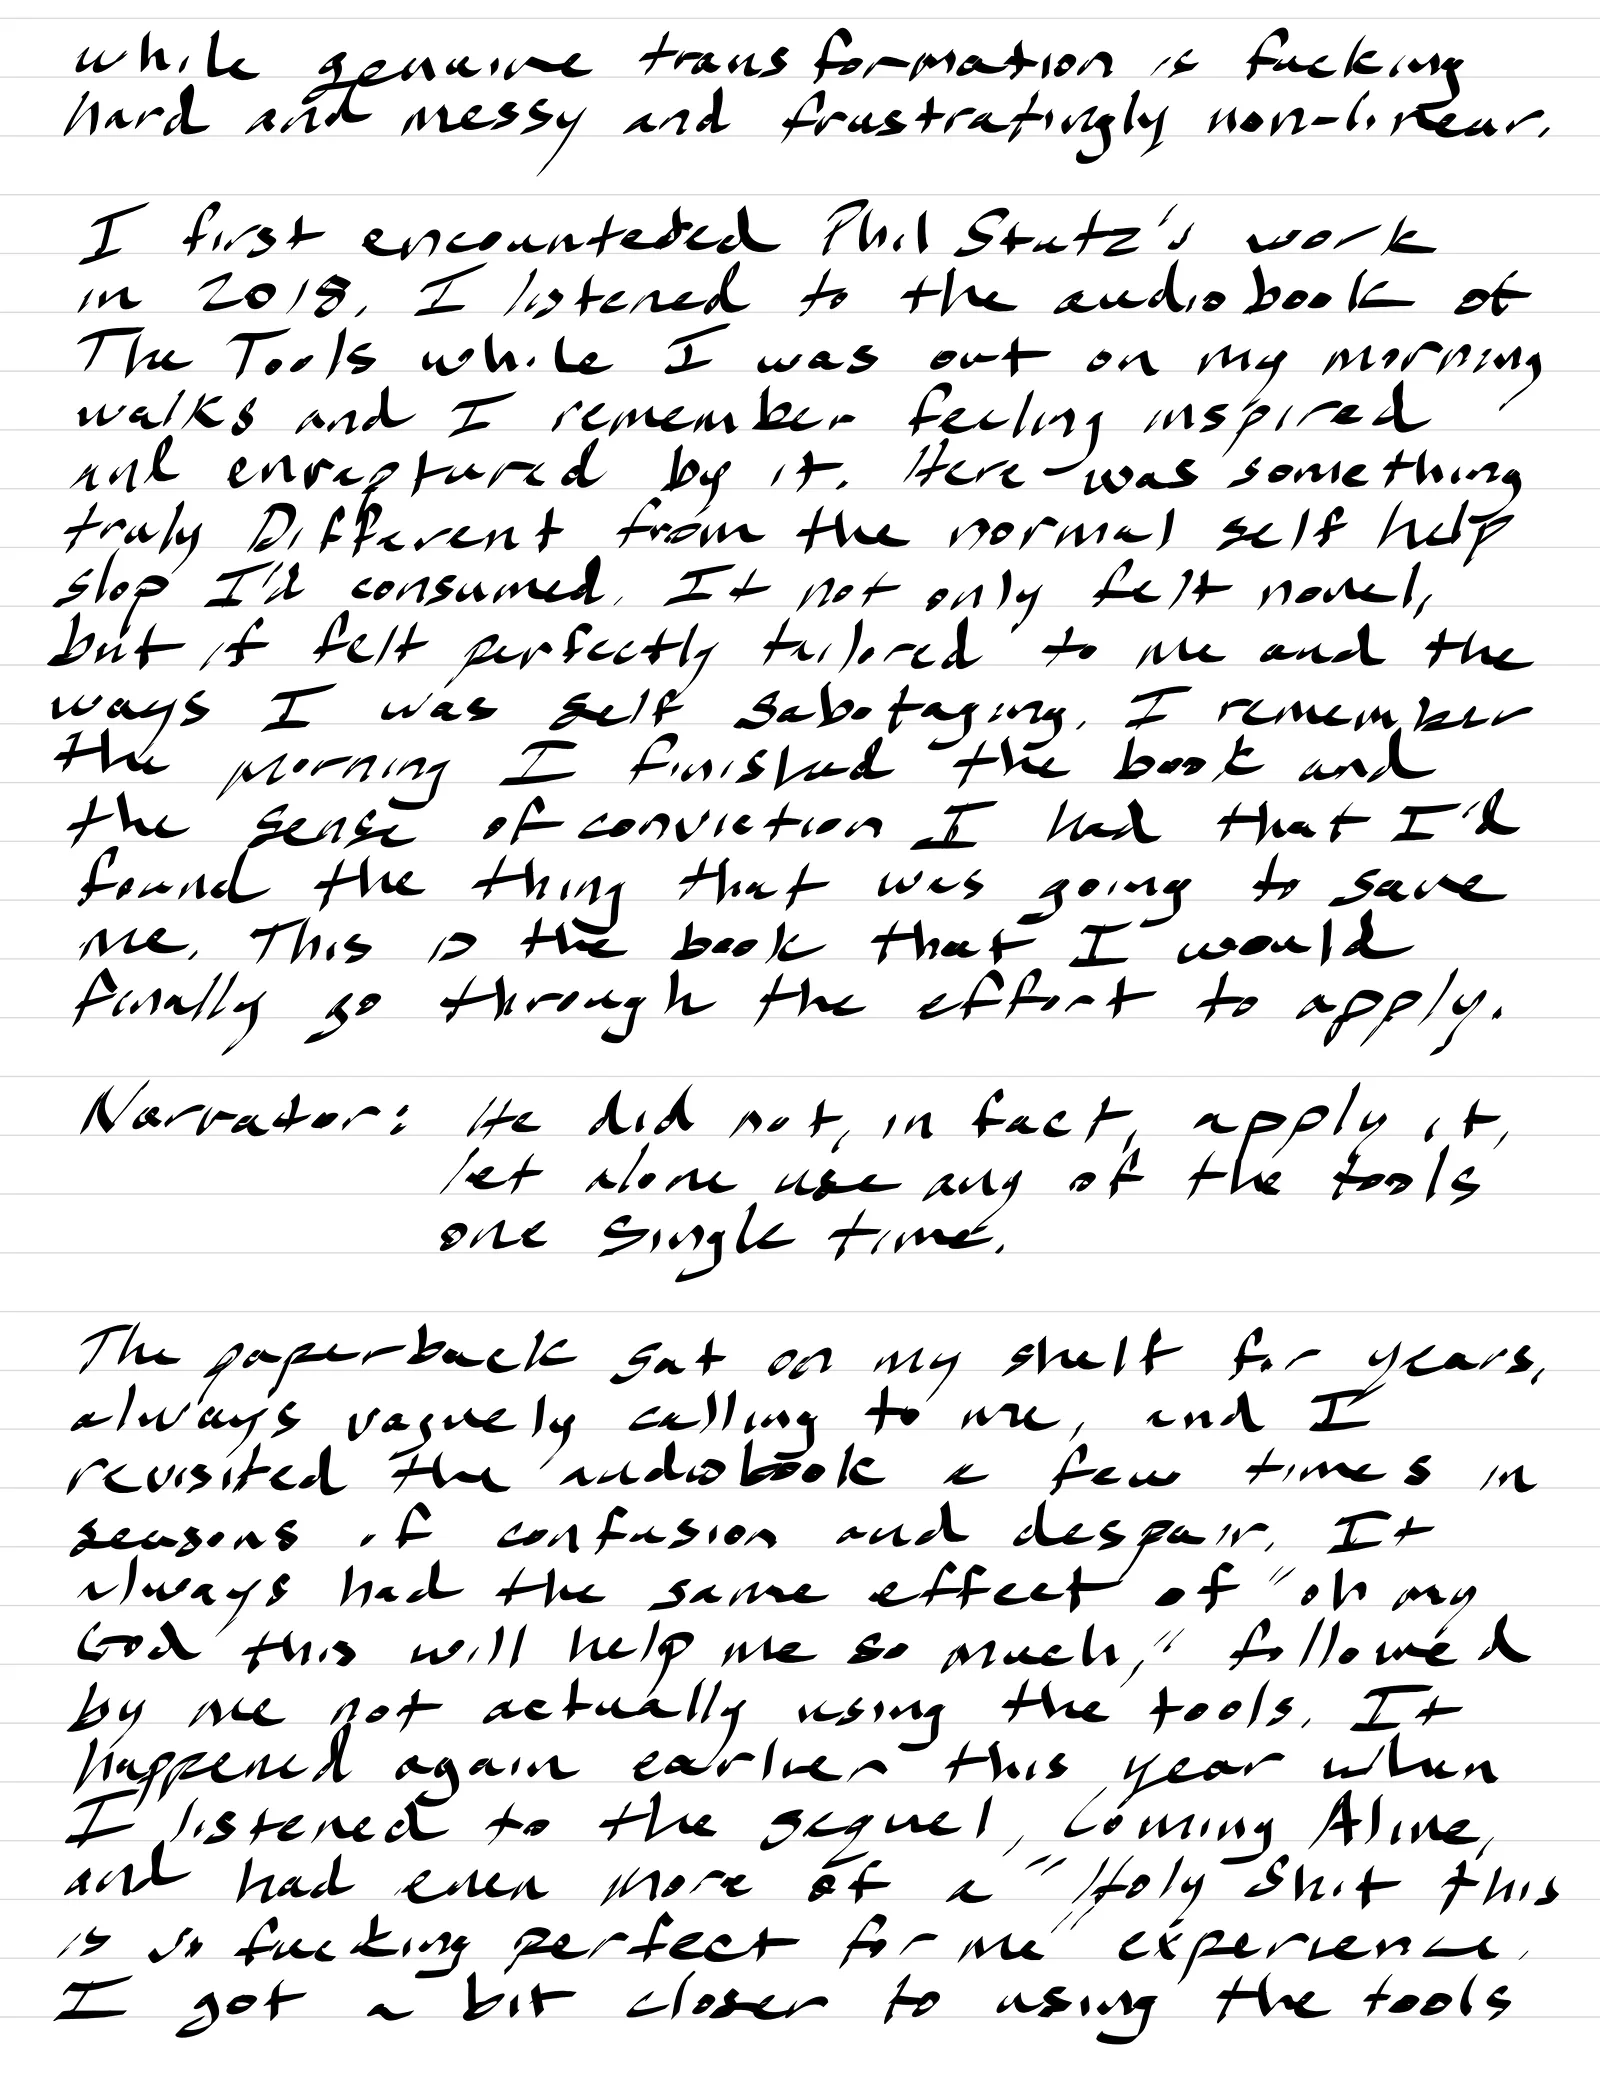 while genuine transformation is fucking
hard and messy and frustratingly non-linear.
I first encountered Phil Stutz's work
in 2018. I listened to the audiobook of
The Tools while I was out on my morning
walks and I remember feeling inspired
and enraptured by it. Here was something
truly Different from the normal self help
slop I'd consumed. It not only felt novel,
but it felt perfectly tailored to me and the
ways I was self sabotaging. I remember
the morning I finished the book and
the sense of conviction I had that I'd
found the thing that was going to save
me. This is the book that I would
finally go through the effort to apply.
Narrator: He did not, in fact, apply it,
let alone use any of the tools
one single time.
The paperback sat on my shelf for years,
always vaguely calling to me, and I
revisited the audiobook a few times in
seasons of confusion and despair. It
always had the same effect of "oh my
God this will help me so much," followed
by me not actually using the tools. It
happened again earlier this year when
I listened to the sequel, Coming Alive,
and had even more of a "Holy Shit this
is so fucking perfect for me" experience.
I got a bit closer to using the tools